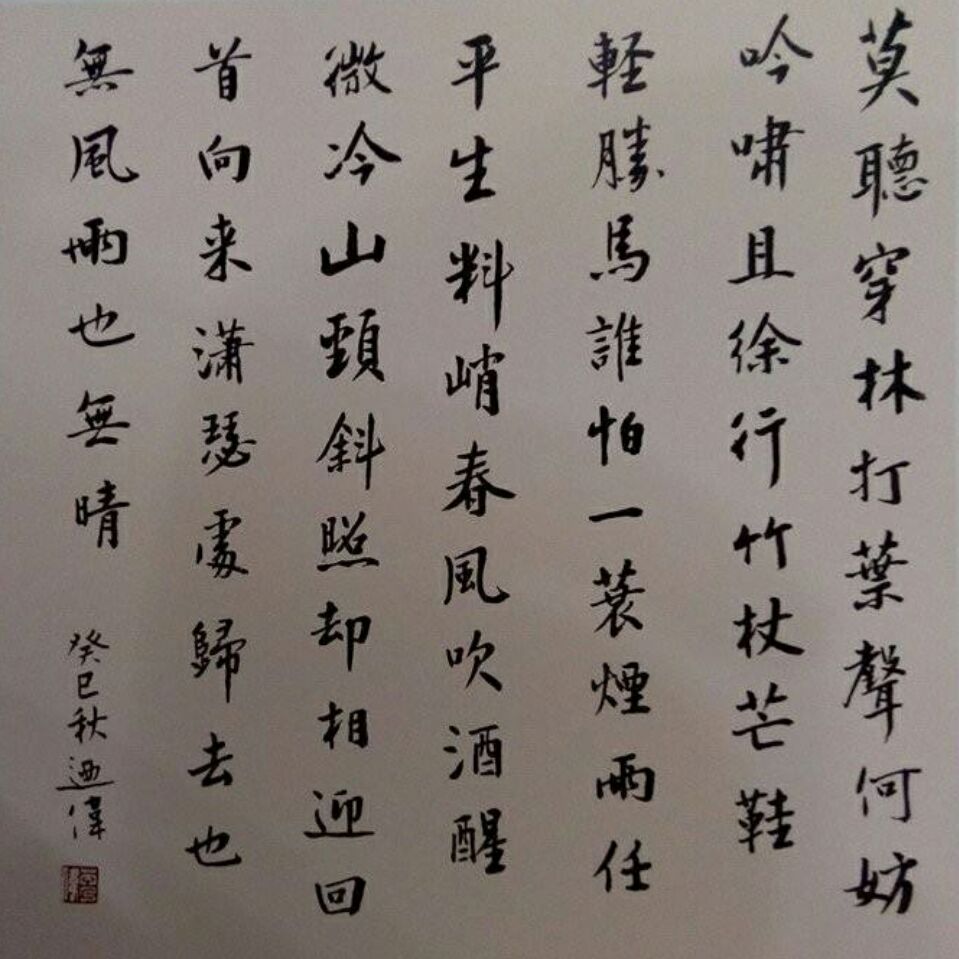 莫聽穿林打葉聲何妨
吟嘯且徐行竹杖芒鞋
軽勝馬誰怕一蓑煙雨任
平生料峭春風吹酒醒
微冷山頭斜照却相迎回
首向来瀟瑟處歸去也
無風雨也無晴
癸巳秋迺偉